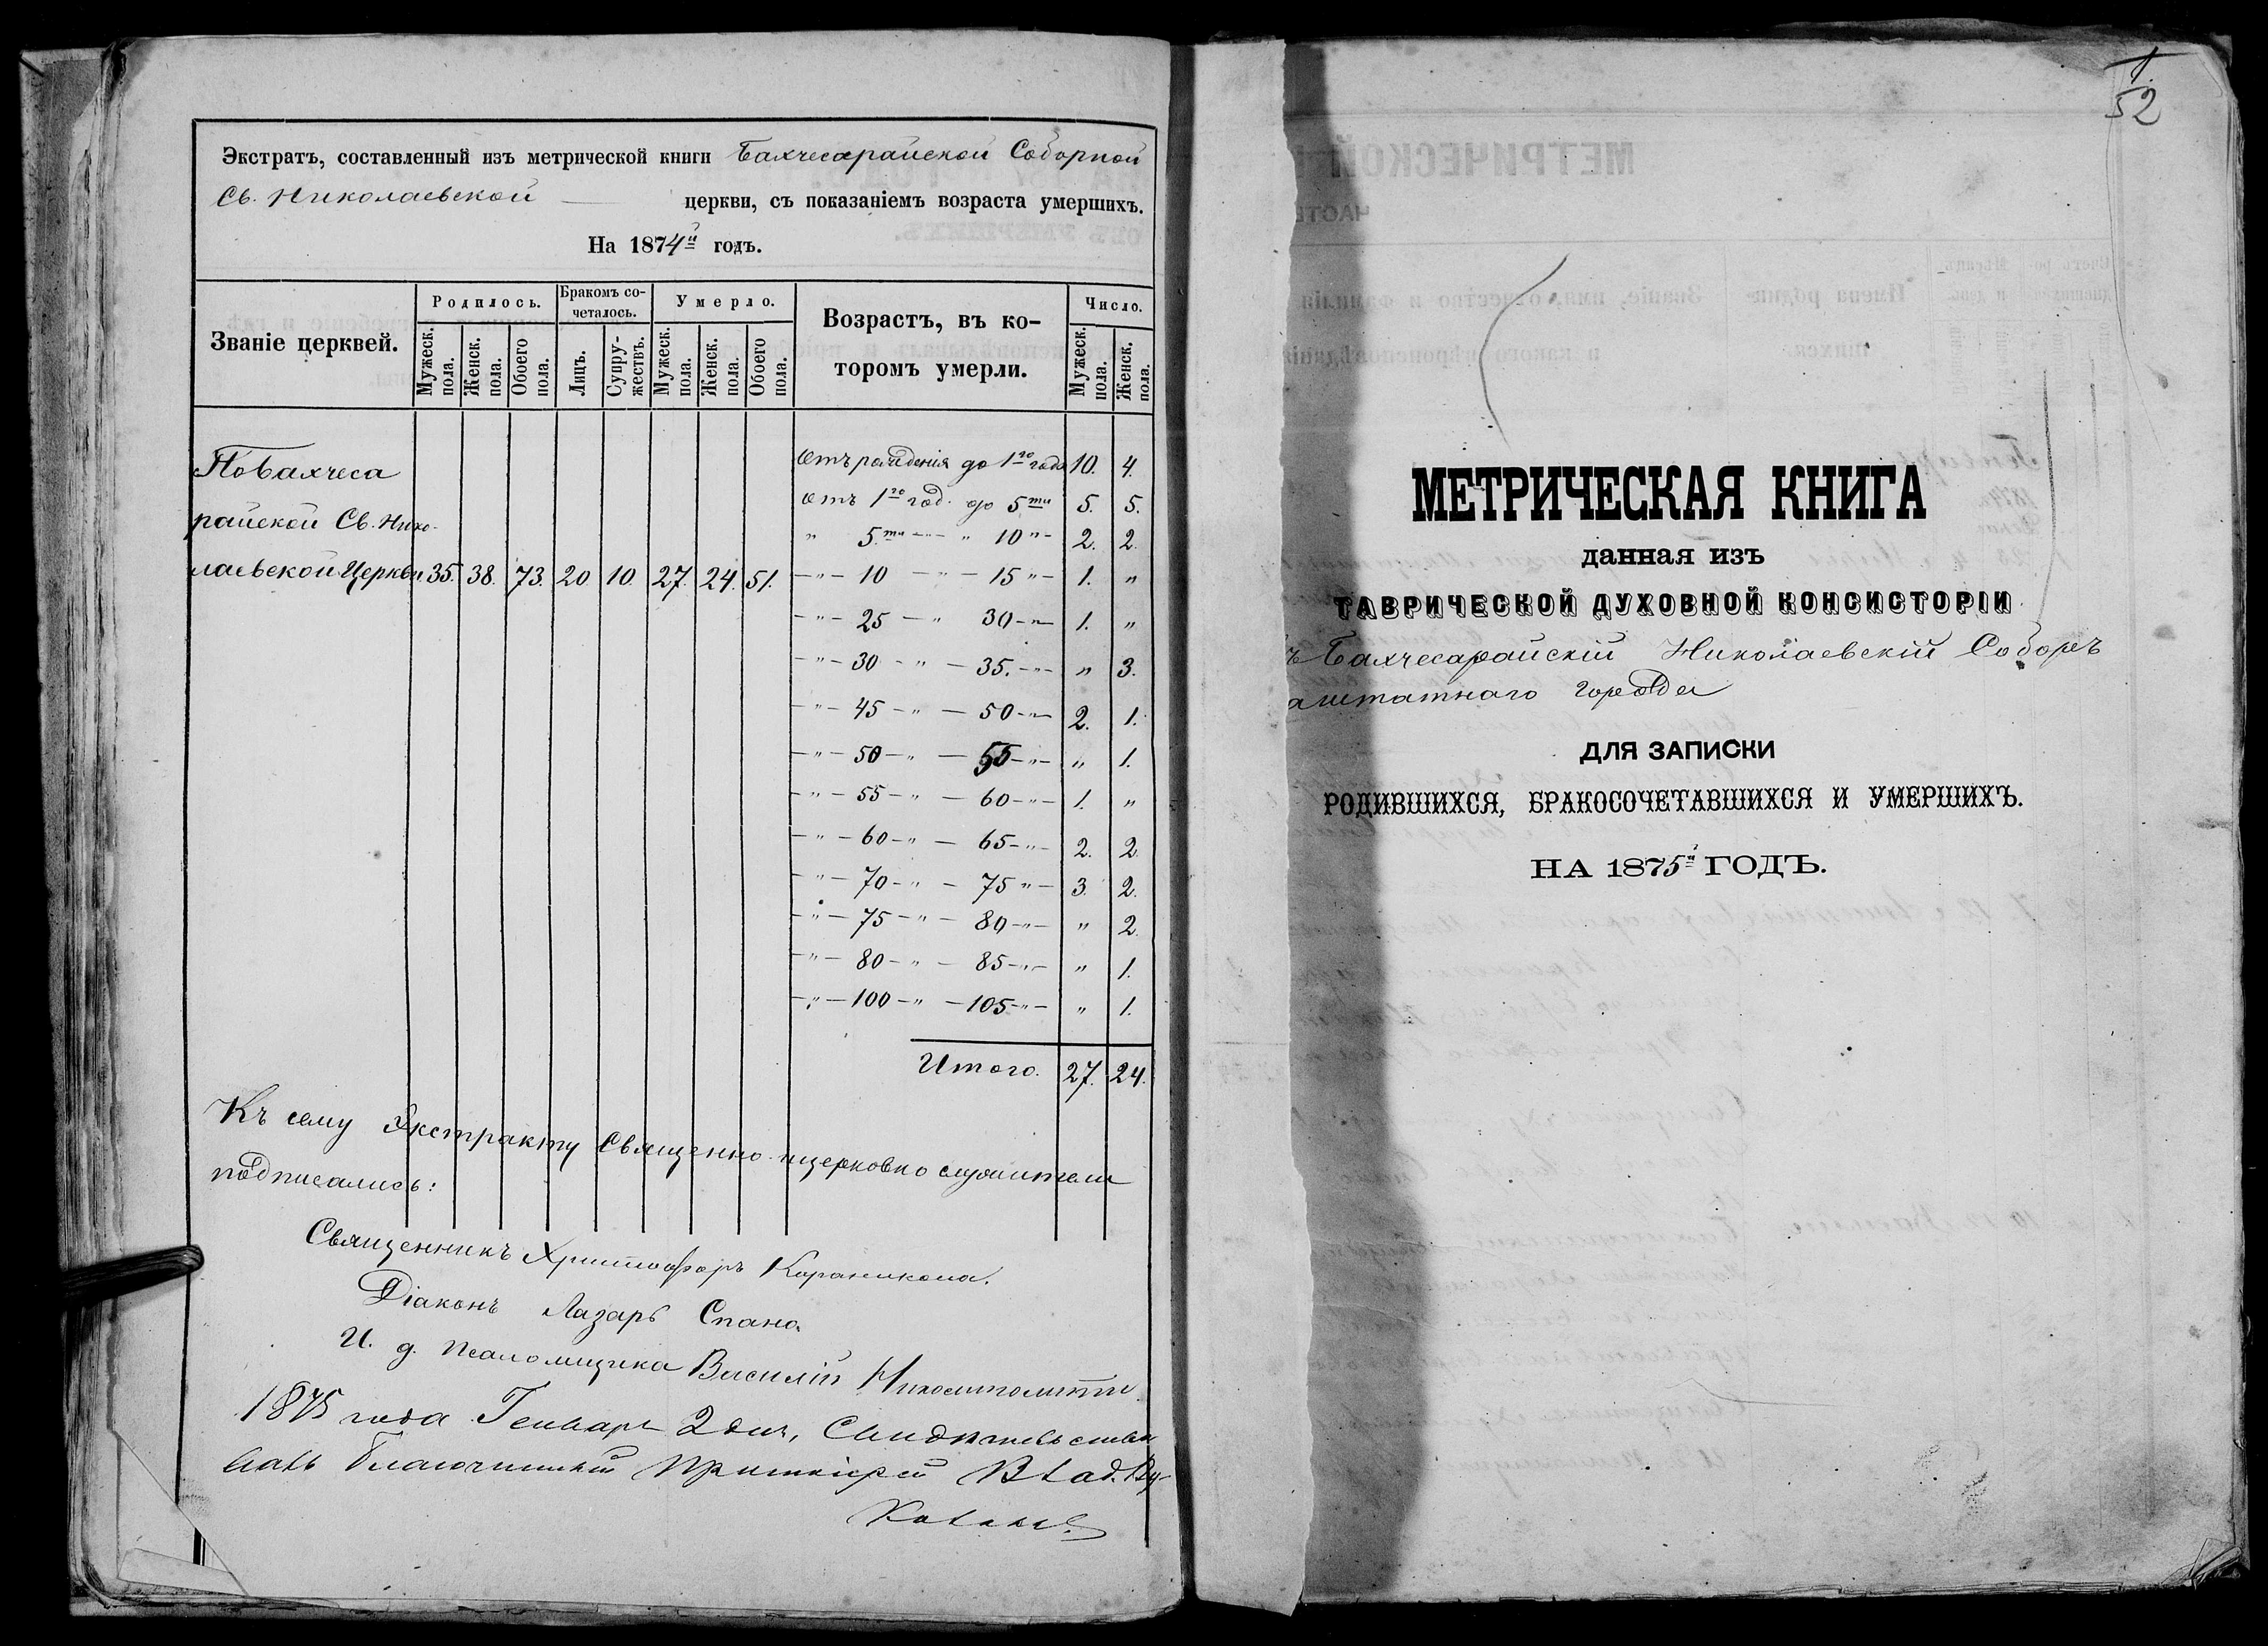 Экстратъ, составленный изъ метрической книги Бахчесарайской Соборной
Св. Николаевской — церкви, съ показаніемъ возраста умершихъ.
На 1874й годъ.
Званіе церквей.
Родилось.
Мужеск. пола.
Женск. пола.
Обоего пола.
Бракомъ сочеталось.
Лицъ.
Супружествъ.
Умерло.
Мужеск. пола.
Женск. пола.
Обоего пола.
Возрастъ, въ ко-
торомъ умерли.
Число.
Мужеск. пола.
Женск. пола.
По Бахчеса
райской Св. Нико-
лаевской Церкви 35. 38. 73. 20 10. 27. 24. 51.
Отъ рожденія до 1го года 10. 4.
Отъ 1го год. до 5ти 5. 5.
" 5ти -"- " 10 "- 2. 2.
-"- 10 -"- 15 "- 1. "
-"- 25 -" 30-"- 1. "
-"- 30 -" - 35.-"- " 3.
-"- 45 -" - 50-"- 2. 1.
-"- 50 -" - 55-"- " 1.
-"- 55 -" - 60-"- 1. "
-"- 60 -" - 65-"- 2. 2.
-"- 70 -" - 75 "- 3. 2.
-"- 75 -" - 80-"- " 2.
-"- 80 -" - 85-"- " 1.
-"- 100 -" - 105-"- " 1.
Итого. 27. 24.
Къ сему Экстракту Священно-церковно служители
подписались:
Священникъ Христофоръ
Діаконъ Лазарь Спано
И. д. псаломщика Василій
1875 года Генваря 2 дня, Свидѣтельство
валъ Благочинный Протоіерей Влад.
1.
52
МЕТРИЧЕСКАЯ КНИГА
данная изъ
ТАВРИЧЕСКОЙ ДУХОВНОЙ КОНСИСТОРІИ
ъ Бахчесарайскій Николаевскій Соборъ
аштатнаго города
ДЛЯ ЗАПИСКИ
РОДИВШИХСЯ, БРАКОСОЧЕТАВШИХСЯ И УМЕРШИХЪ.
НА 1875й ГОДЪ.